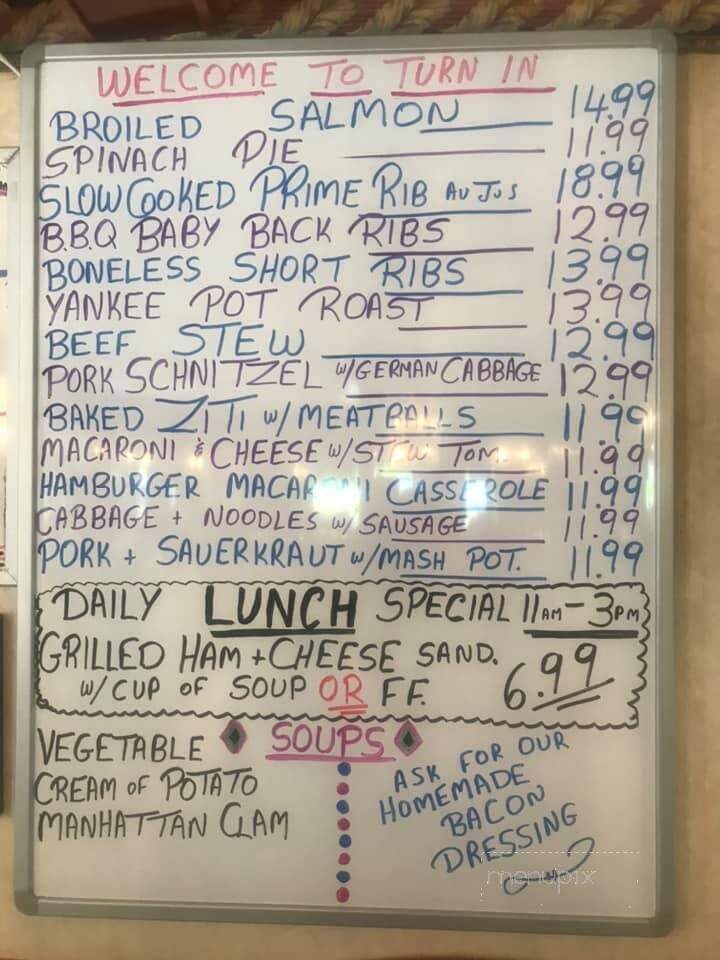 WELCOME TO TURN IN
BROILED SALMON 14.99
SPINACH PIE 11.99
SLOW COOKED PRIME RIB AU JUS 18.99
B.B.Q BABY BACK RIBS 12.99
BONELESS SHORT RIBS 13.99
YANKEE POT ROAST 13.99
BEEF STEW 12.99
PORK SCHNITZEL W/GERMAN CABBAGE 12.99
BAKED ZITI W/ MEATBALLS 11.99
MACARONI & CHEESE W/STEW TOM. 11.99
HAMBURGER MACARONI CASSEROLE 11.99
CABBAGE + NOODLES W/ SAUSAGE 11.99
PORK + SAUERKRAUT W/MASH POT. 11.99
DAILY LUNCH SPECIAL 11AM-3PM
GRILLED HAM + CHEESE SAND.
W/ CUP OF SOUP OR FF. 6.99
SOUPS
VEGETABLE
CREAM OF POTATO
MANHATTAN CLAM
ASK FOR OUR
HOMEMADE
BACON
DRESSING
menupix